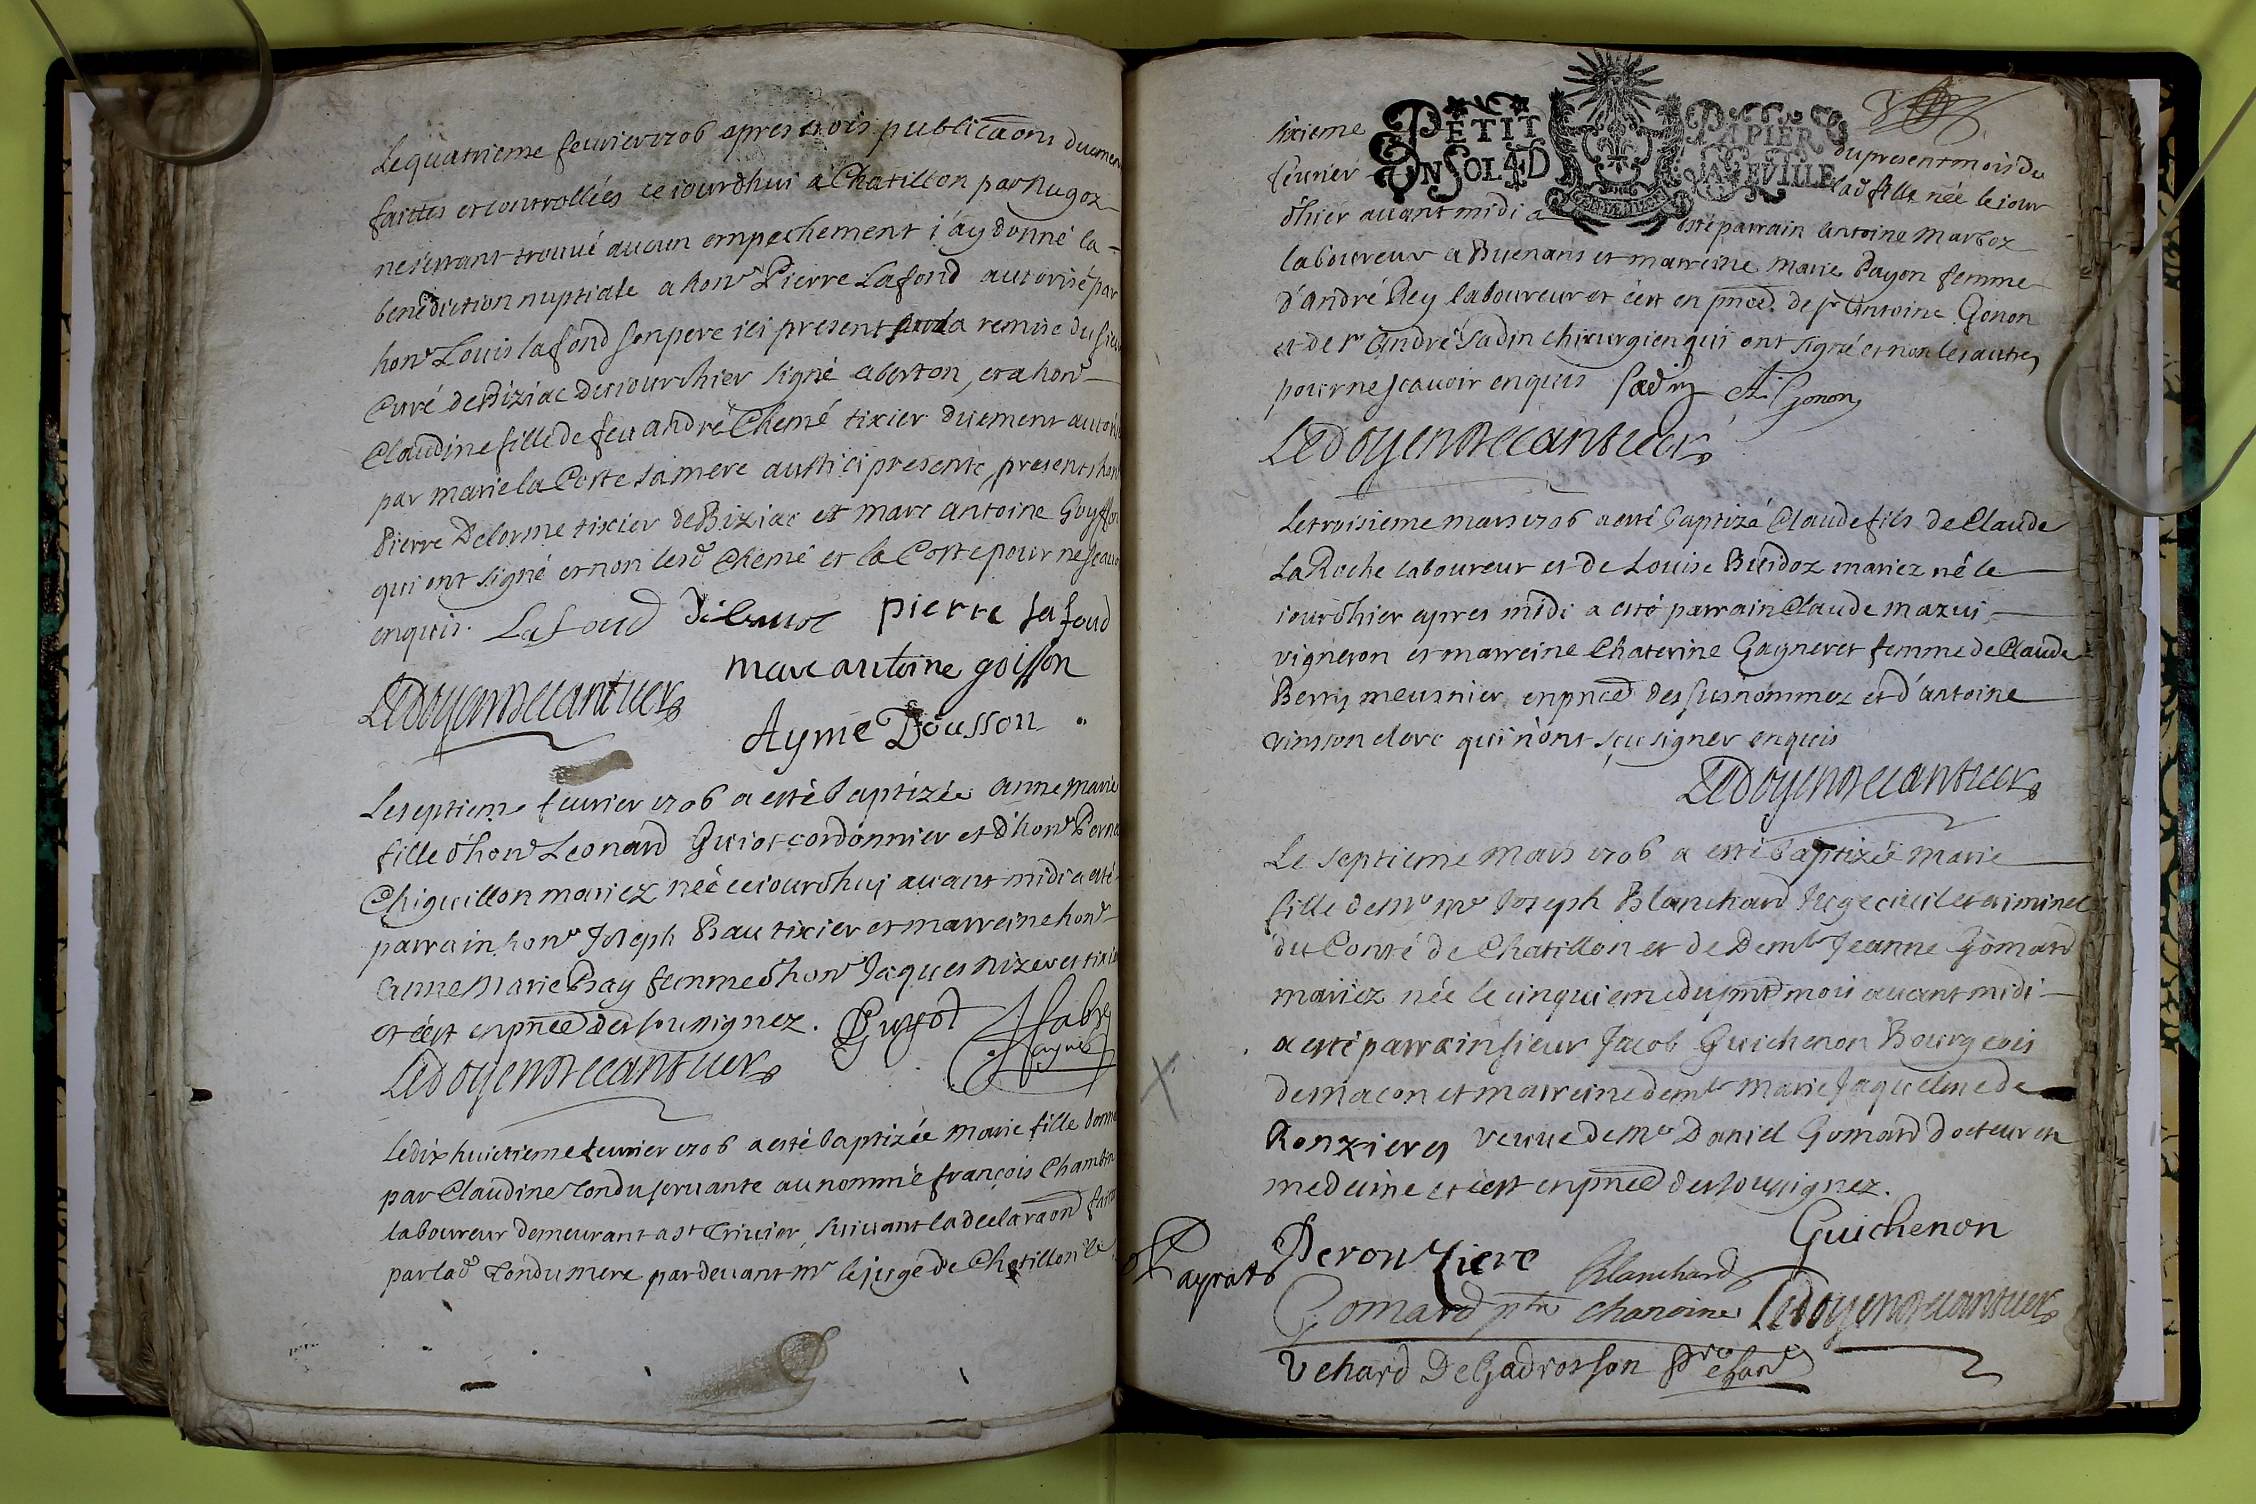 Le quatrieme feuvrier 1706 apres trois publicaōns duemen
faittes et controllées ce iourdhui a Chatillon par Rugoz
ne s'etant trouvé aucun empechement i'ay donné la
benediction nuptiale a hon^e Pierre Lafond autorisé par
hon^e Louis lafond son pere ici present a remise du sieur
Curé de Biziac du iourdhier signé aberton, et a hon^e
Claudine fille de feu andré Chemé tixier duement autoris
par marie la Coste sa mere aussi ici presente, presents hon
Pierre Delorme tixier de Biziac et marc antoine Guyffon
qui ont signé et non lesd Chemé et la Coste pour ne scavoi
enquis. Lafond pierre la fond
marc antoine goisson
Ledoyen Decantuer
Aymé Dousson
Le septieme feuvrier 1706 a esté baptizée anne marie
fille d'hon^e Leonard Guiot cordonnier et d'hon^e Perne
Chiquillon mariez née ce iourdhui avant midi a esté
parrain hon^e Joseph Bau tixier et marreine hon^e
anne Marie Bay femme d'hon^e Jaques Nizeret tixie
et c'est en pñce des soussignez. Guyot
Ledoyen Decantuer
Le dix huictieme feuvrier 1706 a esté baptizée marie fille donné
par Claudine Tondu servante au nommé françois Chamb
laboureur demeurant a st Trivier, suivant la declaraōn faitte
par lad Tondu mere pardevant mr le juge de Chatillon le
PETIT PAPIER
UN SOL 4 D LA FEUILLE
sixieme du present mois de
feuvrier lad fille née le iour
d'hier avant midi a esté parrain antoine Marboz
laboureur a Buenans et marreine marie Payon femme
d'andré Rey laboureur et c'est en pñce de sr Antoine Gonon
et de sr André Sadin chirurgien qui ont signé et non les autres
pour ne scavoir enquis Sadin A. Gonon
Ledoyen Decantuer
Le troisieme mars 1706 a esté baptizé Claude fils de Claude
La Roche laboureur et de Louise Buidoz mariez né le
iourdhier apres midi a esté parrain Claude mazui
vigneron et marreine Chaterine Gagneret femme de Claude
Berry meusnier en pñce des susnommez et d'antoine
vinsson clerc qui n'ont sçu signer enquis
Ledoyen Decantuer
Le septieme Mars 1706 a esté baptizée Marie
fille de mr me Joseph Blanchard Juge civil et criminel
du Conté de Chatillon et de Dem^lle Jeanne Gomard
mariez née le cinquieme du pñt mois avant midi
a esté parrain sieur Jacob Guichenon Bourgeois
de macon et marreine dem^lle Marie Jaqueline de
Ronzieres veuve de Me Daniel Gomard docteur en
medecine et c'est en pñce des soussignez.
Guichenon
Payrat Deronziere Blanchard
Gomard ptre chanoine Ledoyen Decantuer